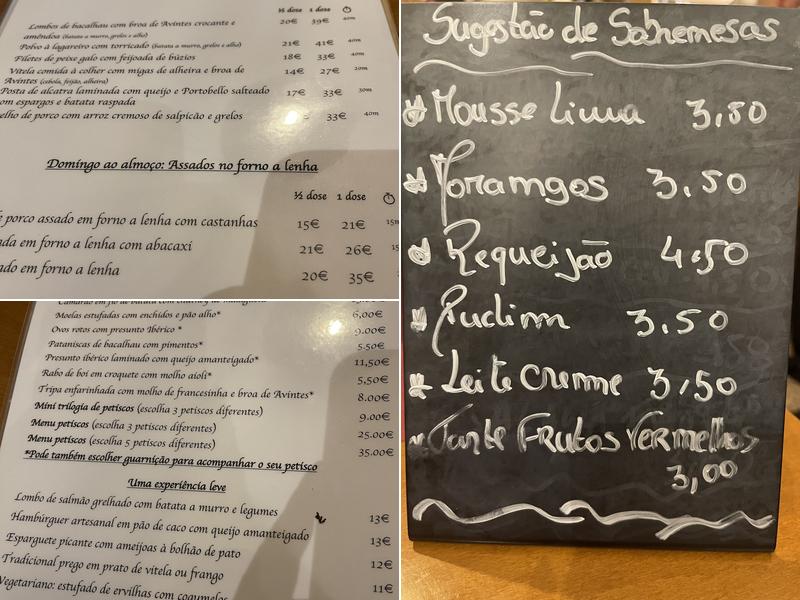 ½ dose 1 dose
Lombos de bacalhau com broa de Avintes crocante e 20€ 39€ 40m
amêndoa (batata a murro, grelos e alho)
Polvo à lagareiro com torricado (batata a murro, grelos e alho) 21€ 41€ 40m
Filetes de peixe galo com feijoada de búzios 18€ 33€ 40m
Vitela comida à colher com migas de alheira e broa de 14€ 27€ 20m
Avintes (cebola, feijão, alheira)
Posta de alcatra laminada com queijo e Portobello salteado 17€ 33€ 30m
com espargos e batata raspada
elho de porco com arroz cremoso de salpicão e grelos 33€ 40m
Domingo ao almoço: Assados no forno a lenha
½ dose 1 dose
e porco assado em forno a lenha com castanhas 15€ 21€ 15m
ada em forno a lenha com abacaxi 21€ 26€ 15
ado em forno a lenha 20€ 35€
Moelas estufadas com enchidos e pão alho* 6,00€
Ovos rotos com presunto Ibérico * 9.00€
Pataniscas de bacalhau com pimentos* 5.50€
Presunto ibérico laminado com queijo amanteigado* 11,50€
Rabo de boi em croquete com molho aioli* 5,50€
Tripa enfarinhada com molho de francesinha e broa de Avintes* 8.00€
Mini trilogia de petiscos (escolha 3 petiscos diferentes) 9.00€
Menu petiscos (escolha 3 petiscos diferentes) 25.00€
Menu petiscos (escolha 5 petiscos diferentes) 35.00€
*Pode também escolher guarnição para acompanhar o seu petisco
Uma experiência leve
Lombo de salmão grelhado com batata a murro e legumes 13€
Hambúrguer artesanal em pão de caco com queijo amanteigado 13€
Esparguete picante com ameijoas à bolhão de pato 12€
Tradicional prego em prato de vitela ou frango 11€
Vegetariano: estufado de ervilhas com cogumelos
Sugestão de Sobremesas
Mousse Lima 3,50
Moramgos 3,50
Requeijão 4,50
Pudim 3,50
Leite Creme 3,50
Tarte Frutos Vermelhos
3,00